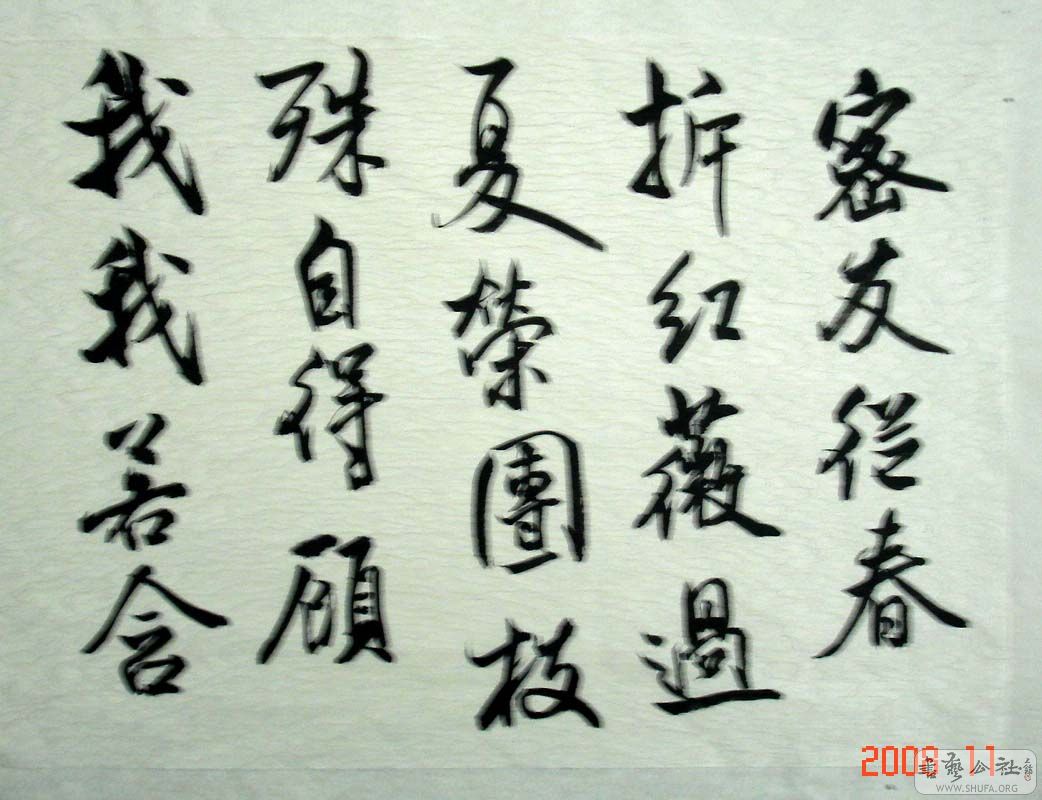 窓友從春
拆红薇過
夏榮團枝
殊自得顾
我我若含
2009 11
書藝公社
WWW.SHUFA.ORG